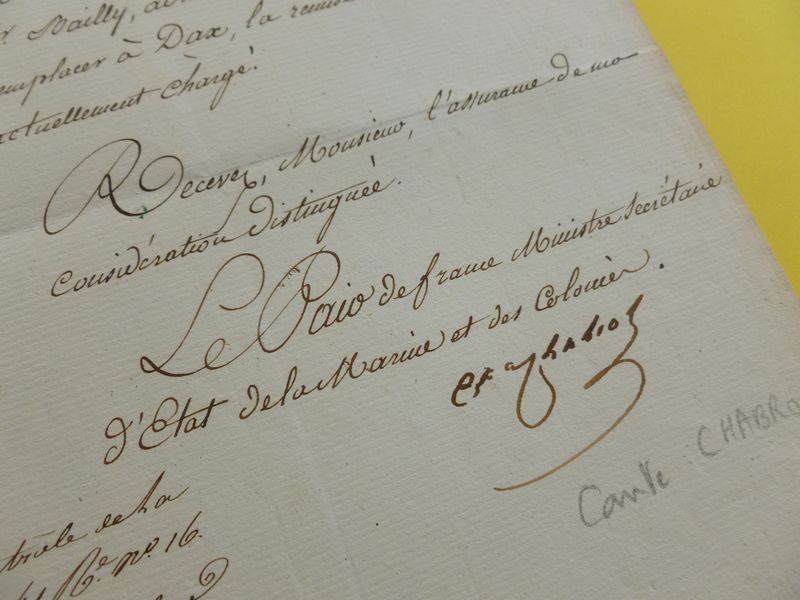 Bailly,
remplacer à Dax, la remise
actuellement chargé.
Recevez, Monsieur, l'assurance de ma
considération distinguée.
Le Pair de france Ministre Secrétaire
d'Etat de la Marine et des Colonies.
Cte CHABRO
trôle de la
Rue nº 16.